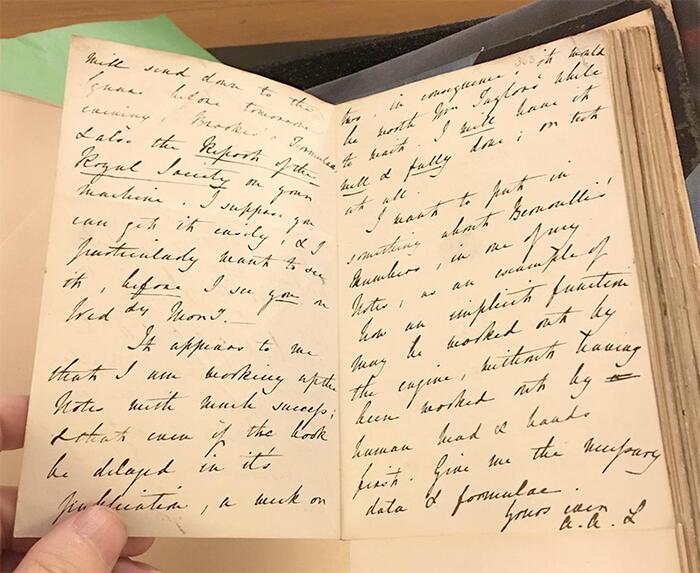 will send down to the
Square before tomorrow
evening, Brooke's Formulae
& also the Report of the
Royal Society on your
machine. I suppose you
can get it easily, & I
particularly want to see
it, before I see you on
Wed.dy Morg.
It appears to me
that I am working up the
Notes with much success;
& that even if the book
be delayed in it's
publication, a week or
two, in consequence, it would
be worth Mr Taylor's while
to wait. I will have it
well & fully done; or not
at all.
I want to put in
something about Bernoulli's
Numbers, in one of my
Notes, as an example of
how an implicit function
may be worked out by
the engine, without having
been worked out by
human head & hands
first. Give me the necessary
data & formulae.
Yours ever
A. A. L